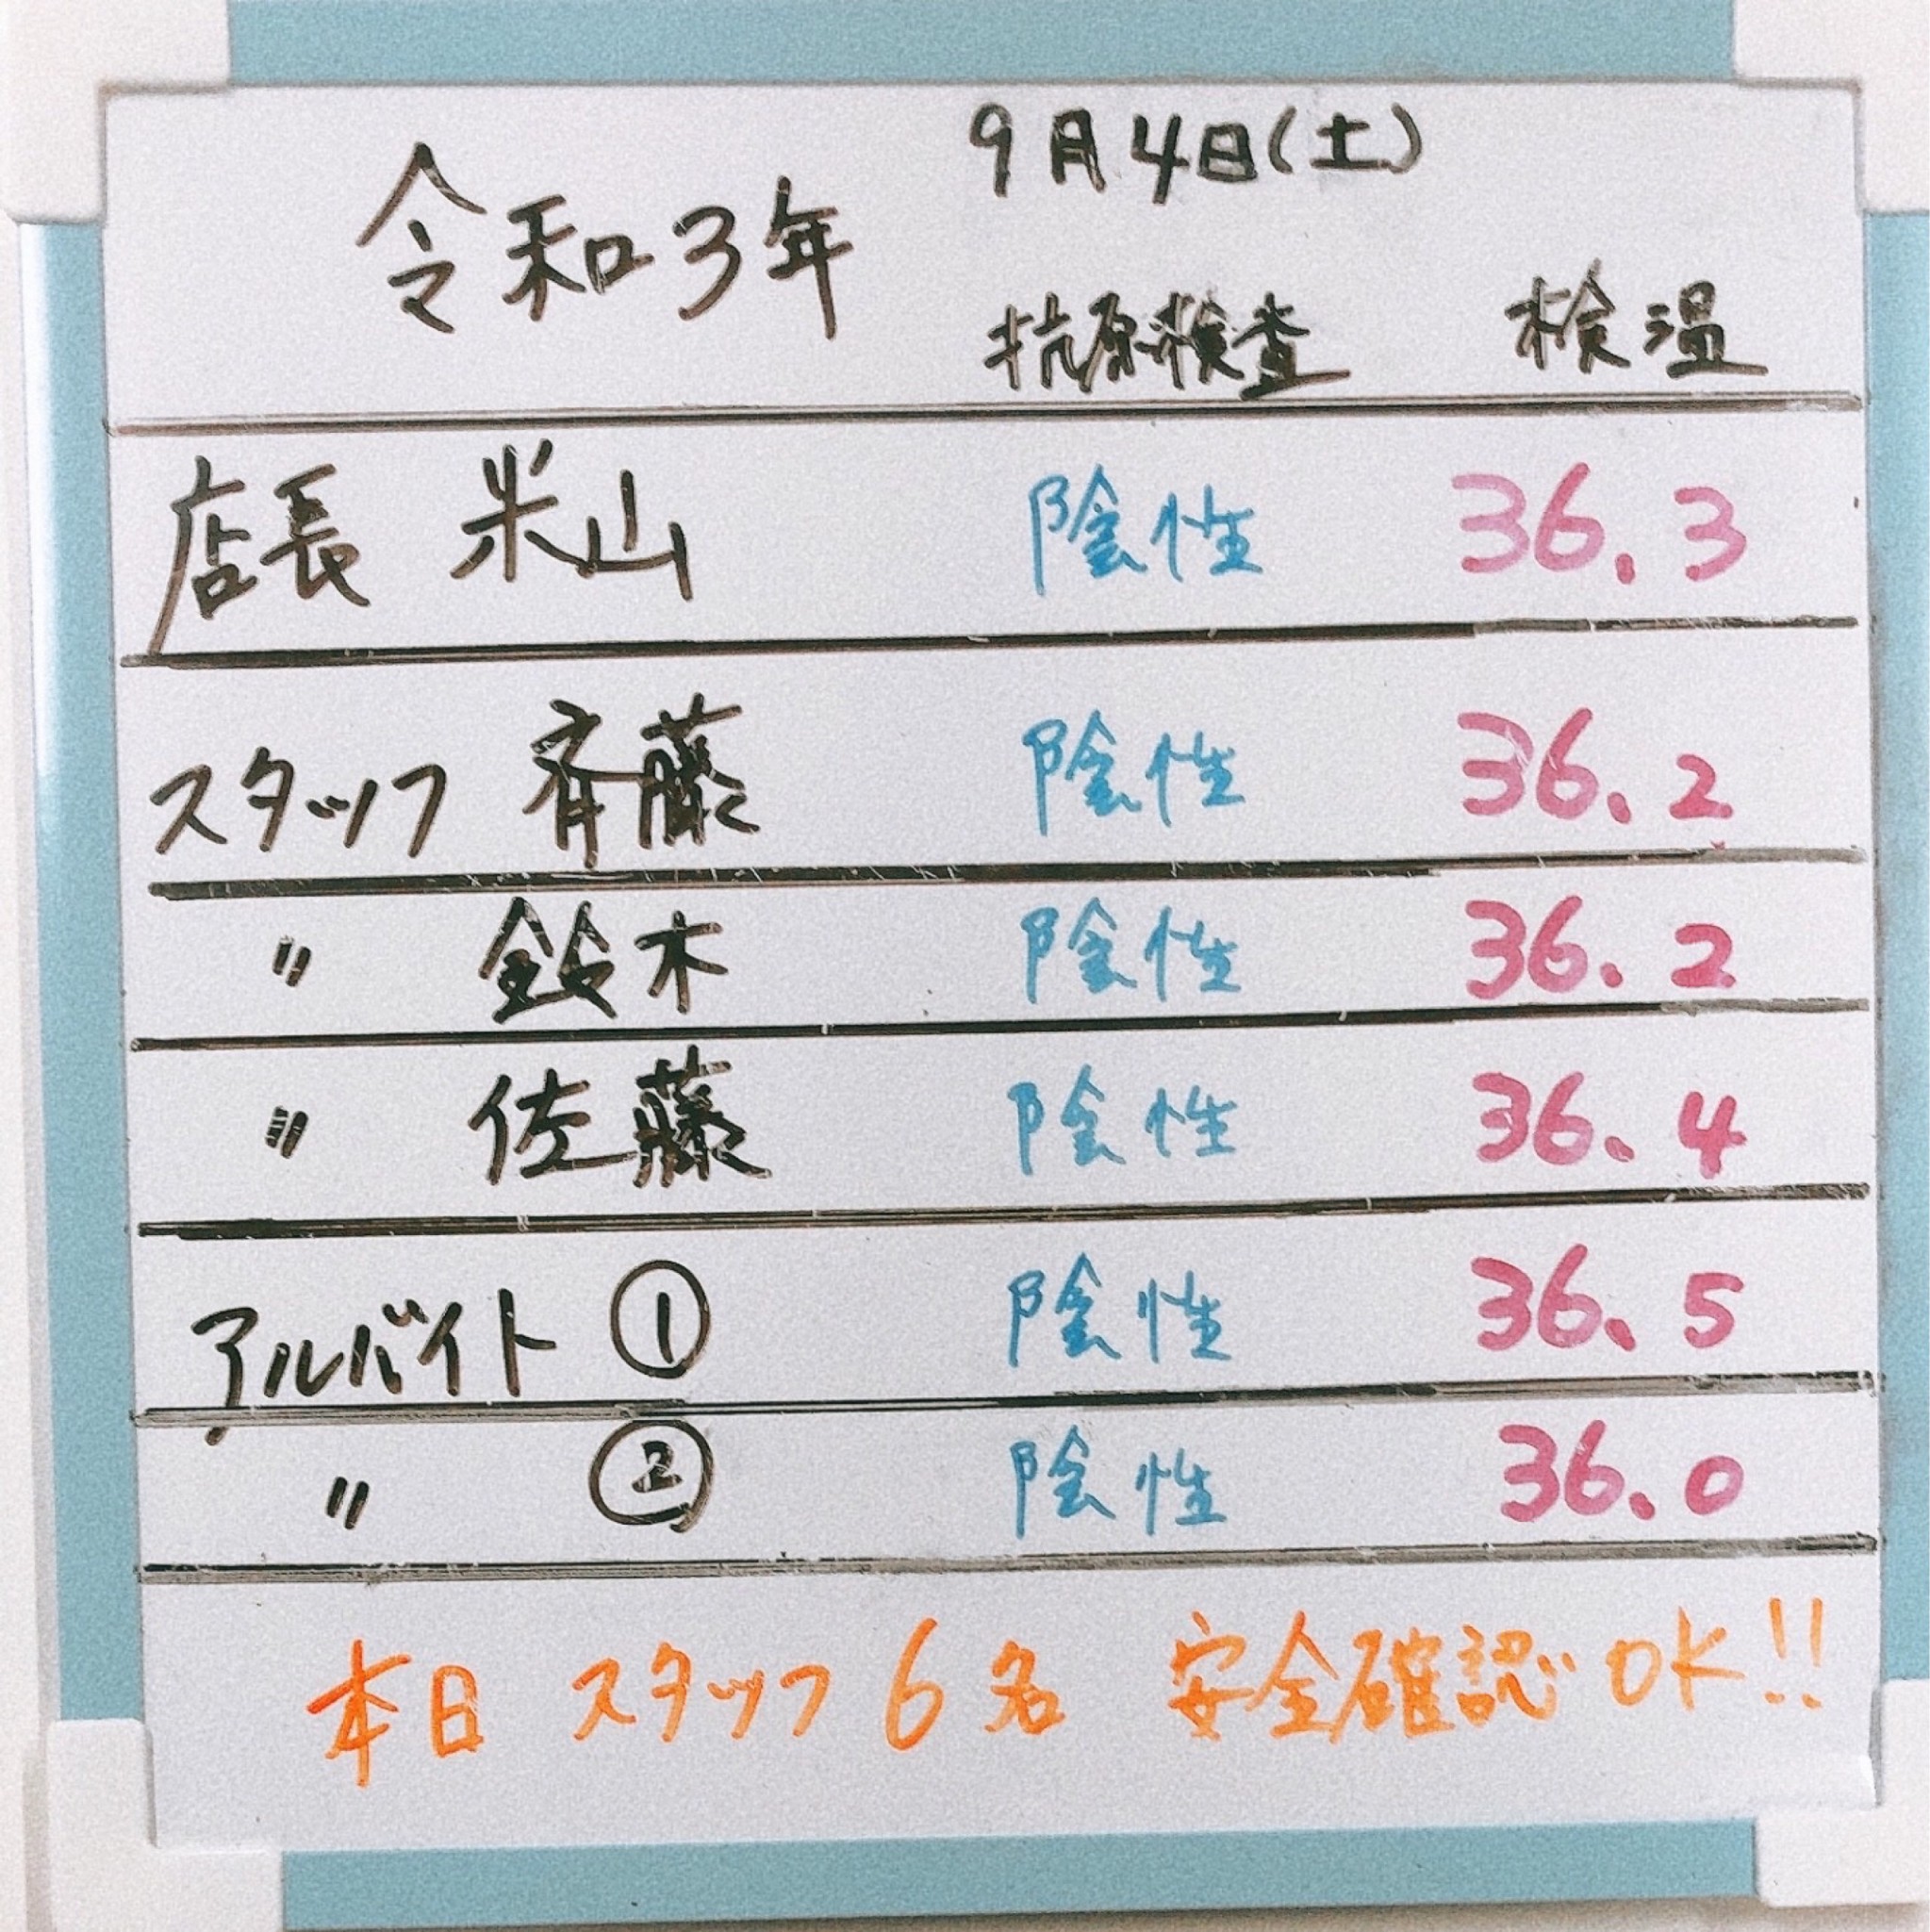 令和3年 9月4日(土)
抗原検査 検温
店長 米山 陰性 36.3
スタッフ 斉藤 陰性 36.2
〃 鈴木 陰性 36.2
〃 佐藤 陰性 36.4
アルバイト ① 陰性 36.5
〃 ② 陰性 36.0
本日 スタッフ 6名 安全確認OK!!